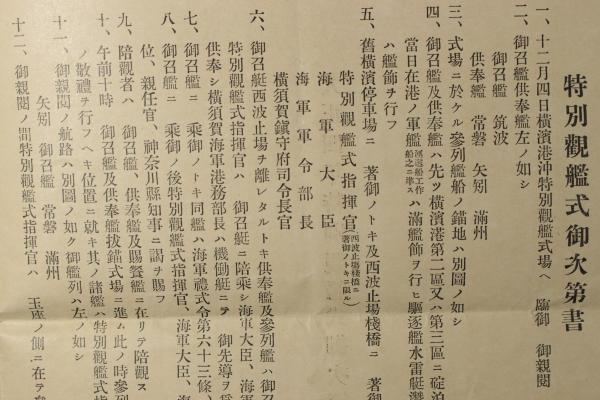 特別觀艦式御次第書
一、十二月四日橫濱港沖特別觀艦式場ヘ 臨御 御親閱
二、御召艦供奉艦左ノ如シ
御召艦 筑波
供奉艦 常磐 矢矧 滿州
三、式場ニ於ケル參列艦船ノ錨地ハ別圖ノ如シ
四、御召艦及供奉艦ハ先ツ橫濱港第二區又ハ第三區ニ碇泊
當日在港ノ軍艦 ハ滿艦飾ヲ行ヒ驅逐艦水雷艇
ハ艦飾ヲ行フ
五、舊橫濱停車場ニ 著御ノトキ及西波止場棧橋ニ 著御
特別觀艦式指揮官(西波止場棧橋ニ著御ノトキニ限ル)
海軍大臣
海軍軍令部長
橫須賀鎭守府司令長官
六、御召艇西波止場ヲ離レタルトキ供奉艦及參列艦ハ御召
特別觀艦式指揮官ハ 御召艇ニ陪乘シ海軍大臣、海軍
供奉シ橫須賀海軍港務部長ハ機動艇ニテ 御先導ヲ爲
七、御召艦ニ 乘御ノトキ同艦ハ海軍禮式令第六十三條、
八、御召艦ニ 乘御ノ後特別觀艦式指揮官、海軍大臣、海
位、親任官、神奈川縣知事ニ謁ヲ賜フ
九、陪觀者ハ 御召艦、供奉艦及賜餐艦ニ在リテ陪觀ス
十、午前十時 御召艦及供奉艦拔錨式場ニ進ム此ノ時參列
ノ敬禮ヲ行フヘキ位置ニ就キ其ノ諸艦ハ特別觀艦式指
十一、御親閱ノ航路ハ別圖ノ如ク御艦列ハ左ノ如シ
矢矧 御召艦 常磐 滿州
十二、御親閱ノ間特別觀艦式指揮官ハ 玉座ノ側ニ在テ